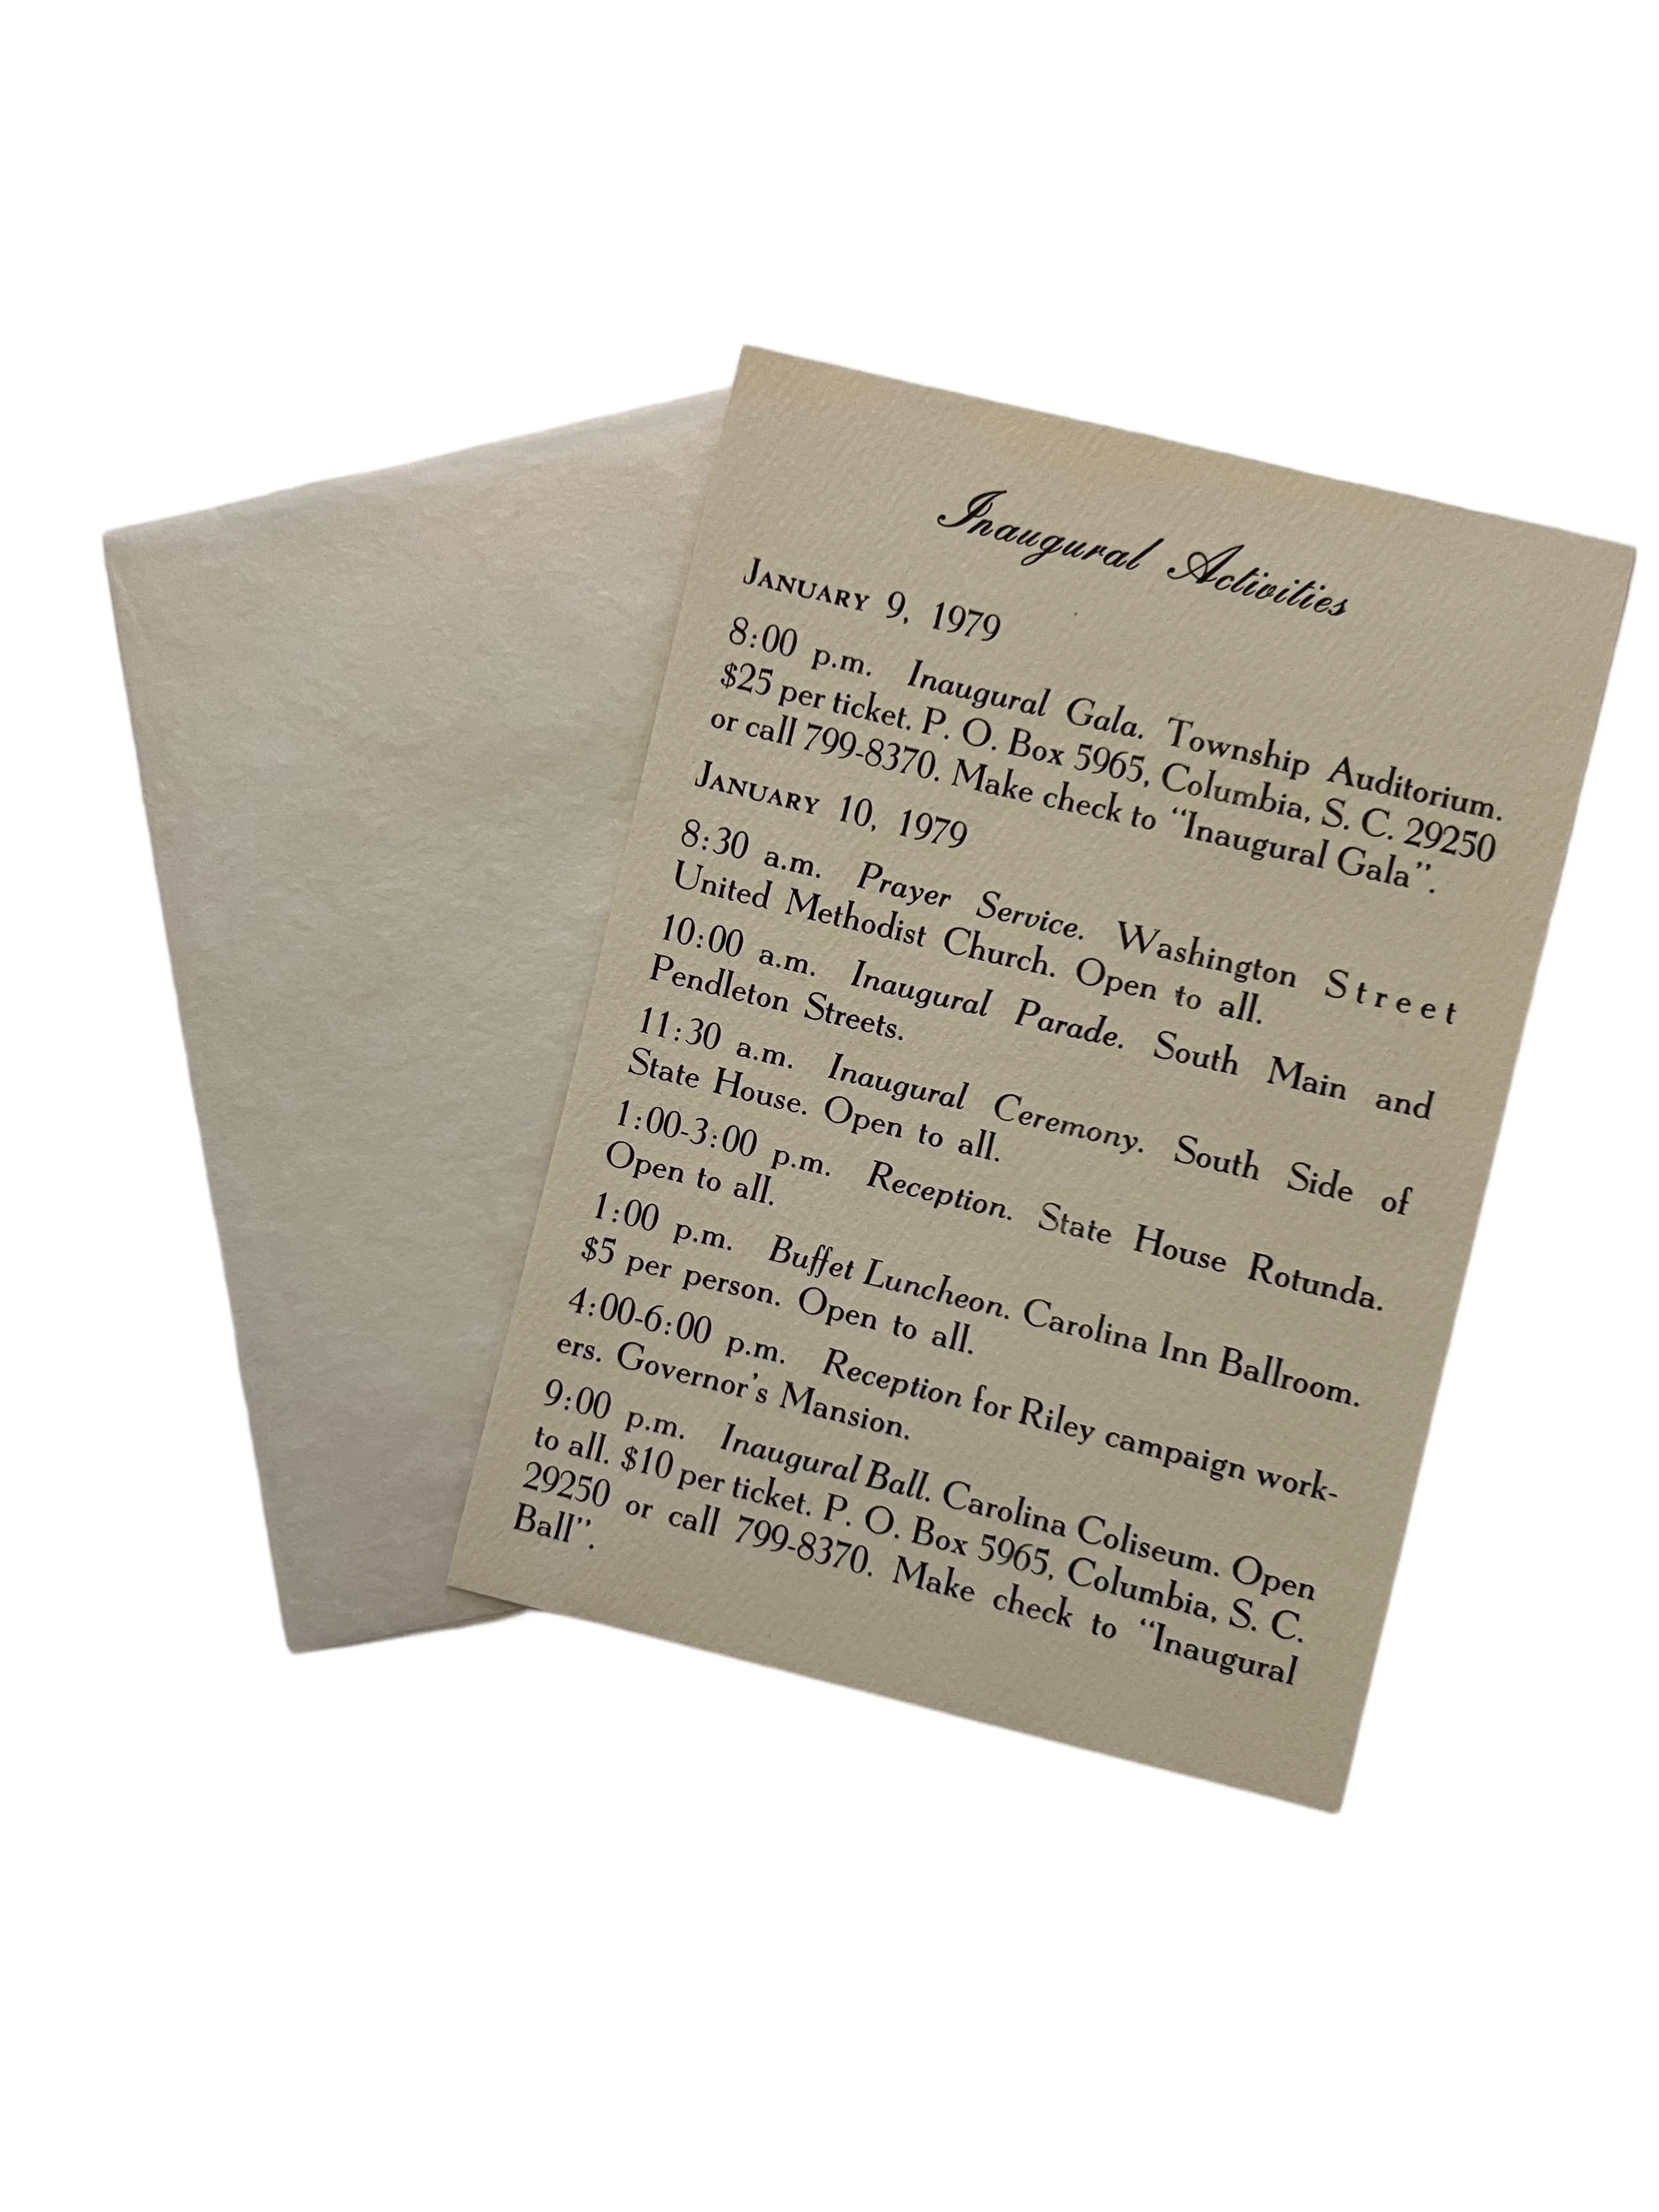 Inaugural Activities
JANUARY 9, 1979
8:00 p.m. Inaugural Gala. Township Auditorium.
$25 per ticket. P. O. Box 5965, Columbia, S. C. 29250
or call 799-8370. Make check to “Inaugural Gala”.
JANUARY 10, 1979
8:30 a.m. Prayer Service. Washington Street
United Methodist Church. Open to all.
10:00 a.m. Inaugural Parade. South Main and
Pendleton Streets.
11:30 a.m. Inaugural Ceremony. South Side of
State House. Open to all.
1:00-3:00 p.m. Reception. State House Rotunda.
Open to all.
1:00 p.m. Buffet Luncheon. Carolina Inn Ballroom.
$5 per person. Open to all.
4:00-6:00 p.m. Reception for Riley campaign work-
ers. Governor’s Mansion.
9:00 p.m. Inaugural Ball. Carolina Coliseum. Open
to all. $10 per ticket. P. O. Box 5965, Columbia, S. C.
29250 or call 799-8370. Make check to “Inaugural
Ball”.